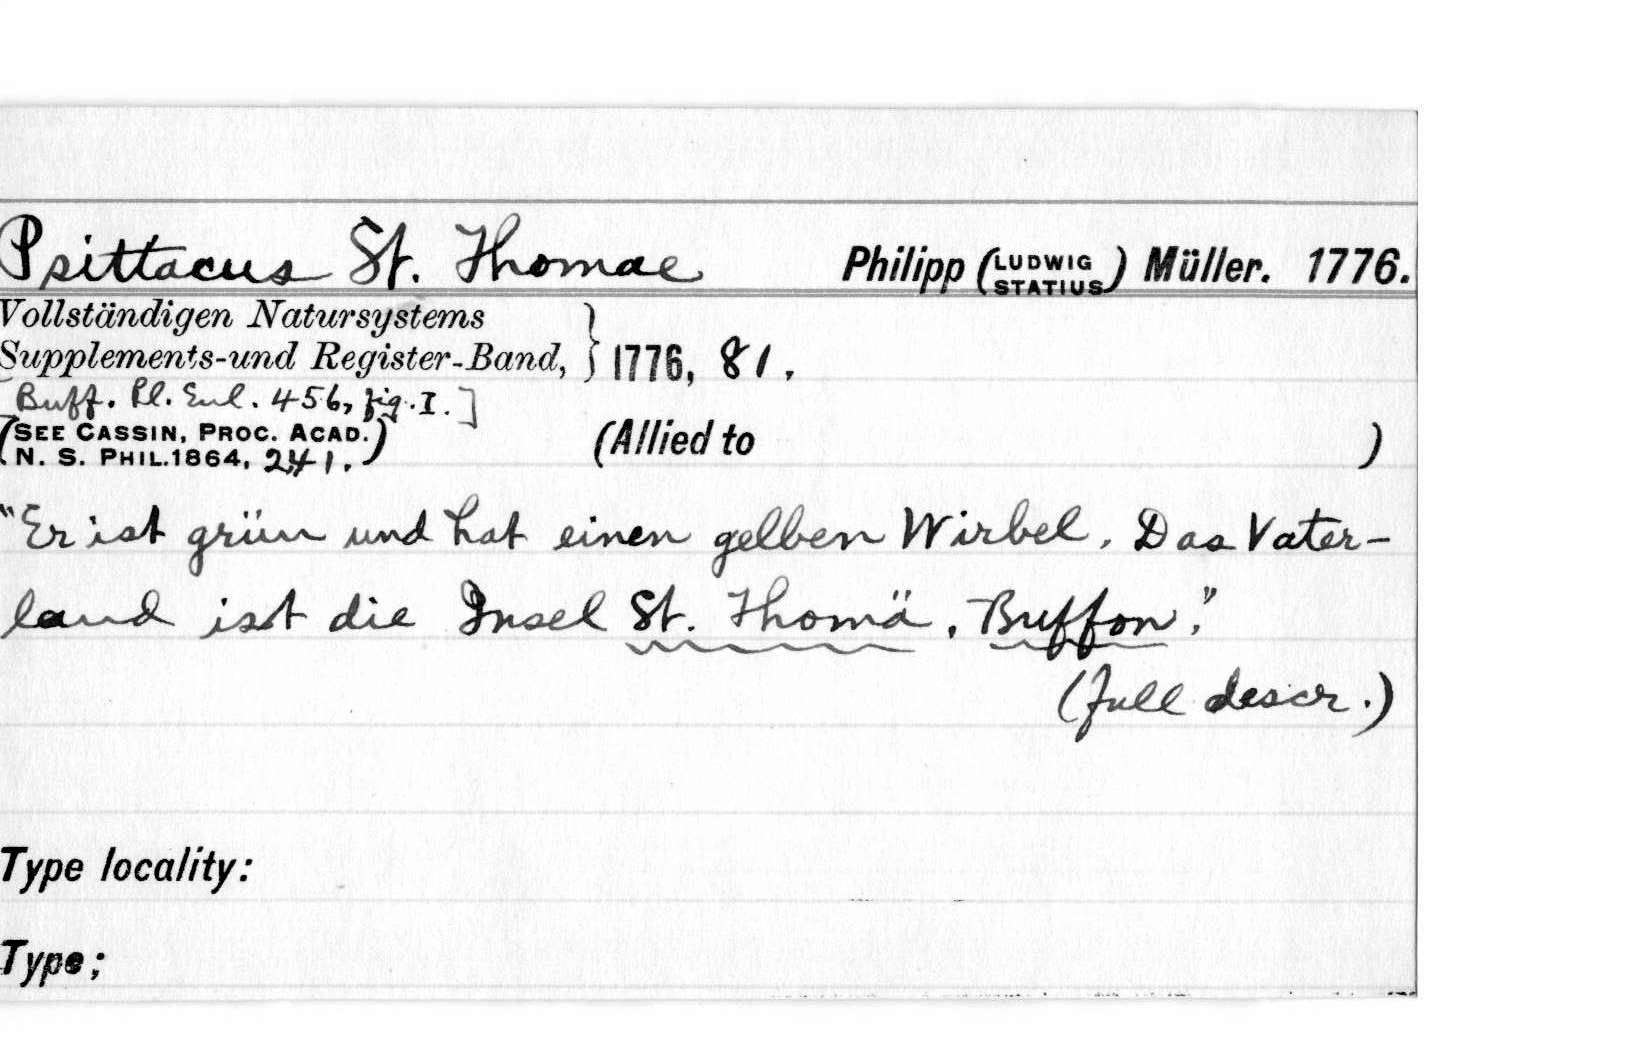 Psittacus St. Thomae Philipp (LUDWIG STATIUS) Müller. 1776.
Vollständigen Natursystems
Supplements-und Register-Band, } 1776, 81.
[Buff. Pl. Enl. 456, fig. I.]
(SEE CASSIN, PROC. ACAD.
N. S. PHIL. 1864, 241.) (Allied to )
"Er ist grün und hat einen gelben Wirbel. Das Vater-
land ist die Insel St. Thomä, Buffon."
(full descr.)
Type locality:
Type;